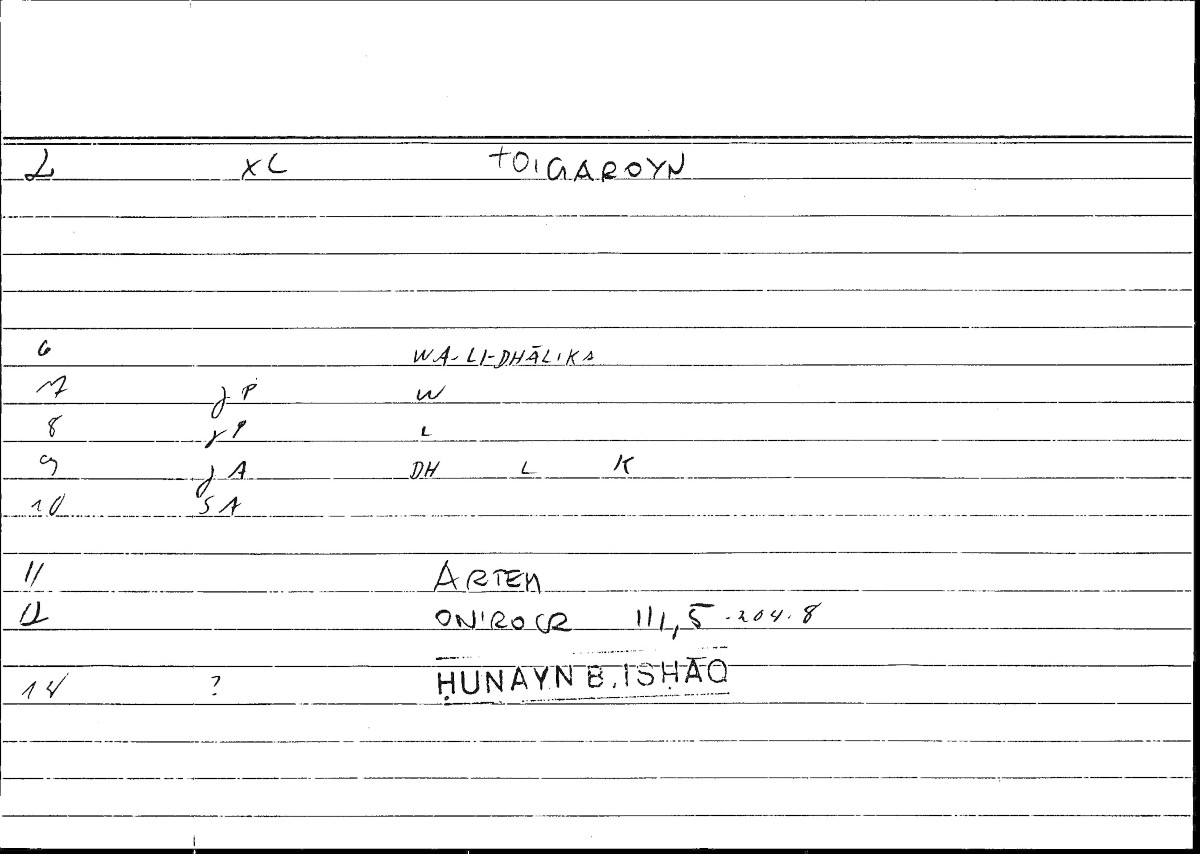 2 XL TOIGAROYN
6 WA-LI-DHĀLIKA
7 jP W
8 jP L
9 jA DH L K
10 SA
11 ARTEM
12 ON'ROCR III,5 204.8
14 ? ḤUNAYN B. ISḤĀQ